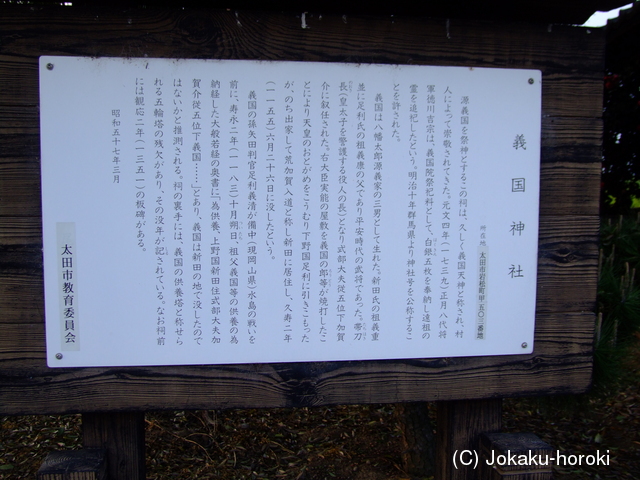 義国神社
所在地 太田市岩松町甲一五〇三番地
源義国を祭神とするこの祠は、久しく義国天神と称され、村
人によって崇敬されてきた。元文四年(一七三九)正月八代将
軍徳川吉宗は、義国院祭祀料として、白銀五枚を奉納し遠祖の
霊を追祀したという。明治十年群馬県より神社号を公称するこ
とを許された。
義国は、八幡太郎源義家の三男として生れた。新田氏の祖義重
並に足利氏の祖義康の父であり平安時代の武将であった。帯刀
長(皇太子を警護する役人の長)となり式部大夫従五位下加賀
介に叙任された。右大臣実能の屋敷を義国の郎等が焼打したこ
とにより天皇のおとがめをこうむり下野国足利に引きこもった
が、のち出家して荒加賀入道と称し新田に居住し、久寿二年
(一一五五)六月二十六日に没したという。
義国の孫矢田判官足利義清が備中(現岡山県)水島の戦いを
前に、寿永二年(一一八三)十月朔日、祖父義国等の供養の為
納経した大般若経の奥書に「為供養、上野国新田住式部大夫加
賀介従五位下義国……」とあり、義国は新田の地で没したので
はないかと推測される。祠の裏手には、義国の供養塔と称せら
れる五輪塔の残欠があり、その没年が記されている。なお祠前
には観応二年(一三五一)の板碑がある。
昭和五十七年三月
太田市教育委員会
(C) Jokaku-horoki